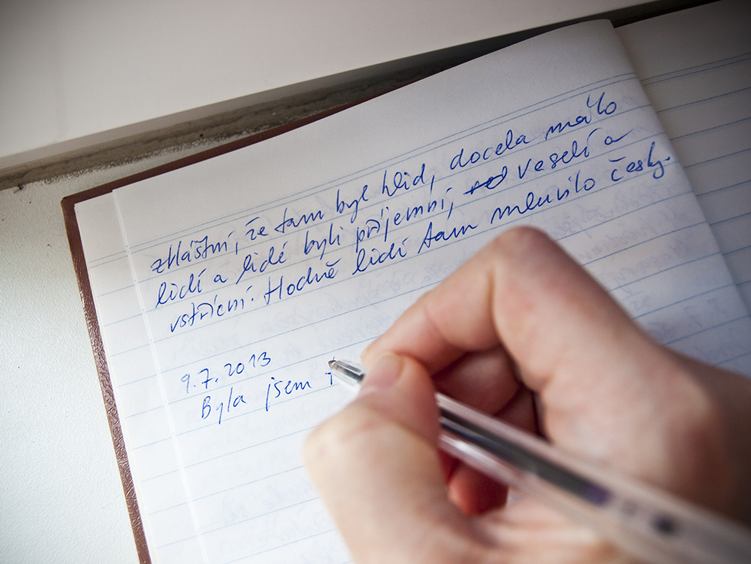 zvláštní, že tam byl klid, docela málo
lidí a lidé byli příjemní, veselí a
vstřícní. Hodně lidí tam mluvilo česky.
9.7.2013
Byla jsem